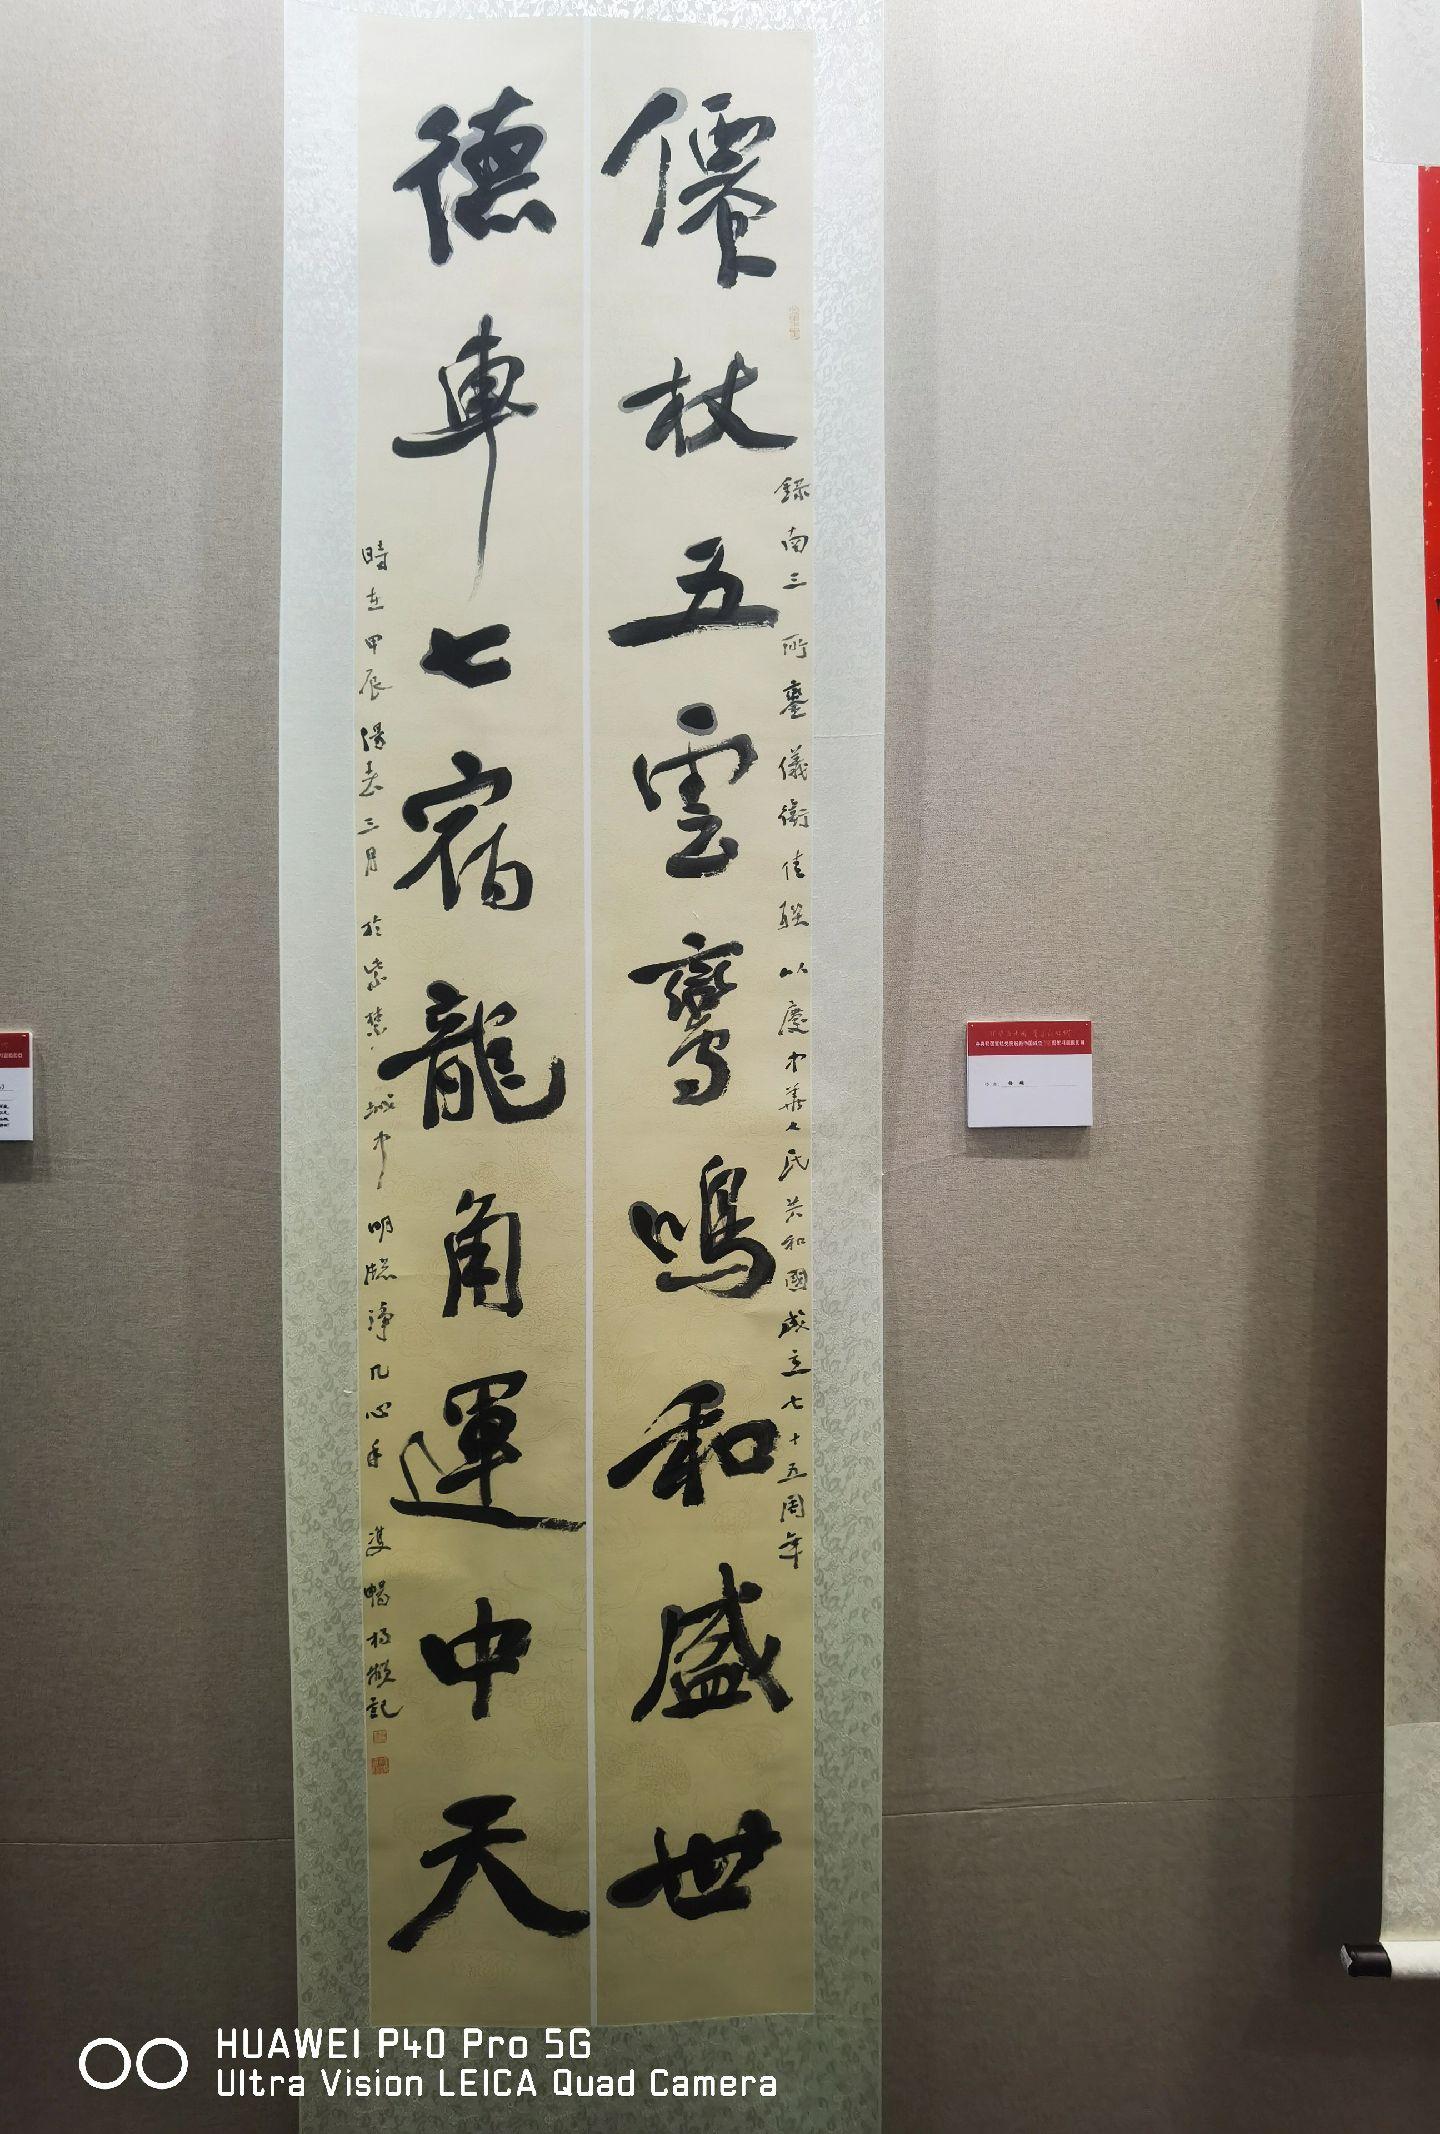 僊杖五雲鸞鳴和盛世
錄南三所鑾儀衛佳聯以慶中華人民共和國成立七十五周年
德車七宿龍角運中天
時在甲辰陽春三月於紫禁城中明牕淨几心手雙暢楊頻記
HUAWEI P40 Pro 5G
Ultra Vision LEICA Quad Camera